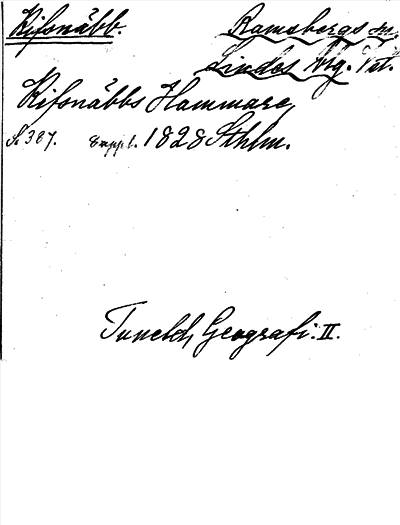 Rifsnäbb. Ramsbergs sn.
Lindes Brg. Vst.
Rifsnäbbs Hammare,
S. 387. Suppl. 1828 Sthlm.
Tuneld, Geografi. II.